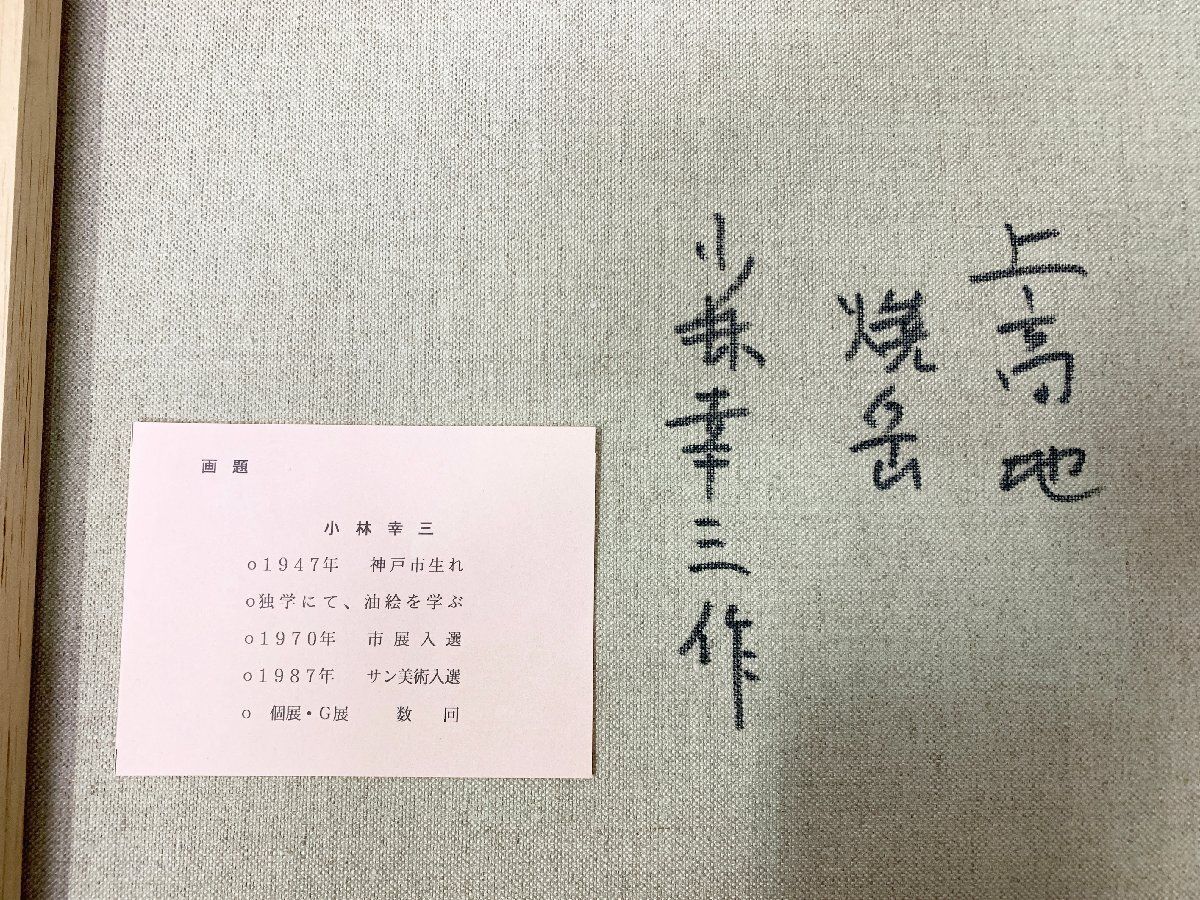 上高地
焼岳
小林幸三作
画題
小林幸三
o1947年 神戸市生れ
o独学にて、油絵を学ぶ
o1970年 市展入選
o1987年 サン美術入選
o 個展・G展 数回